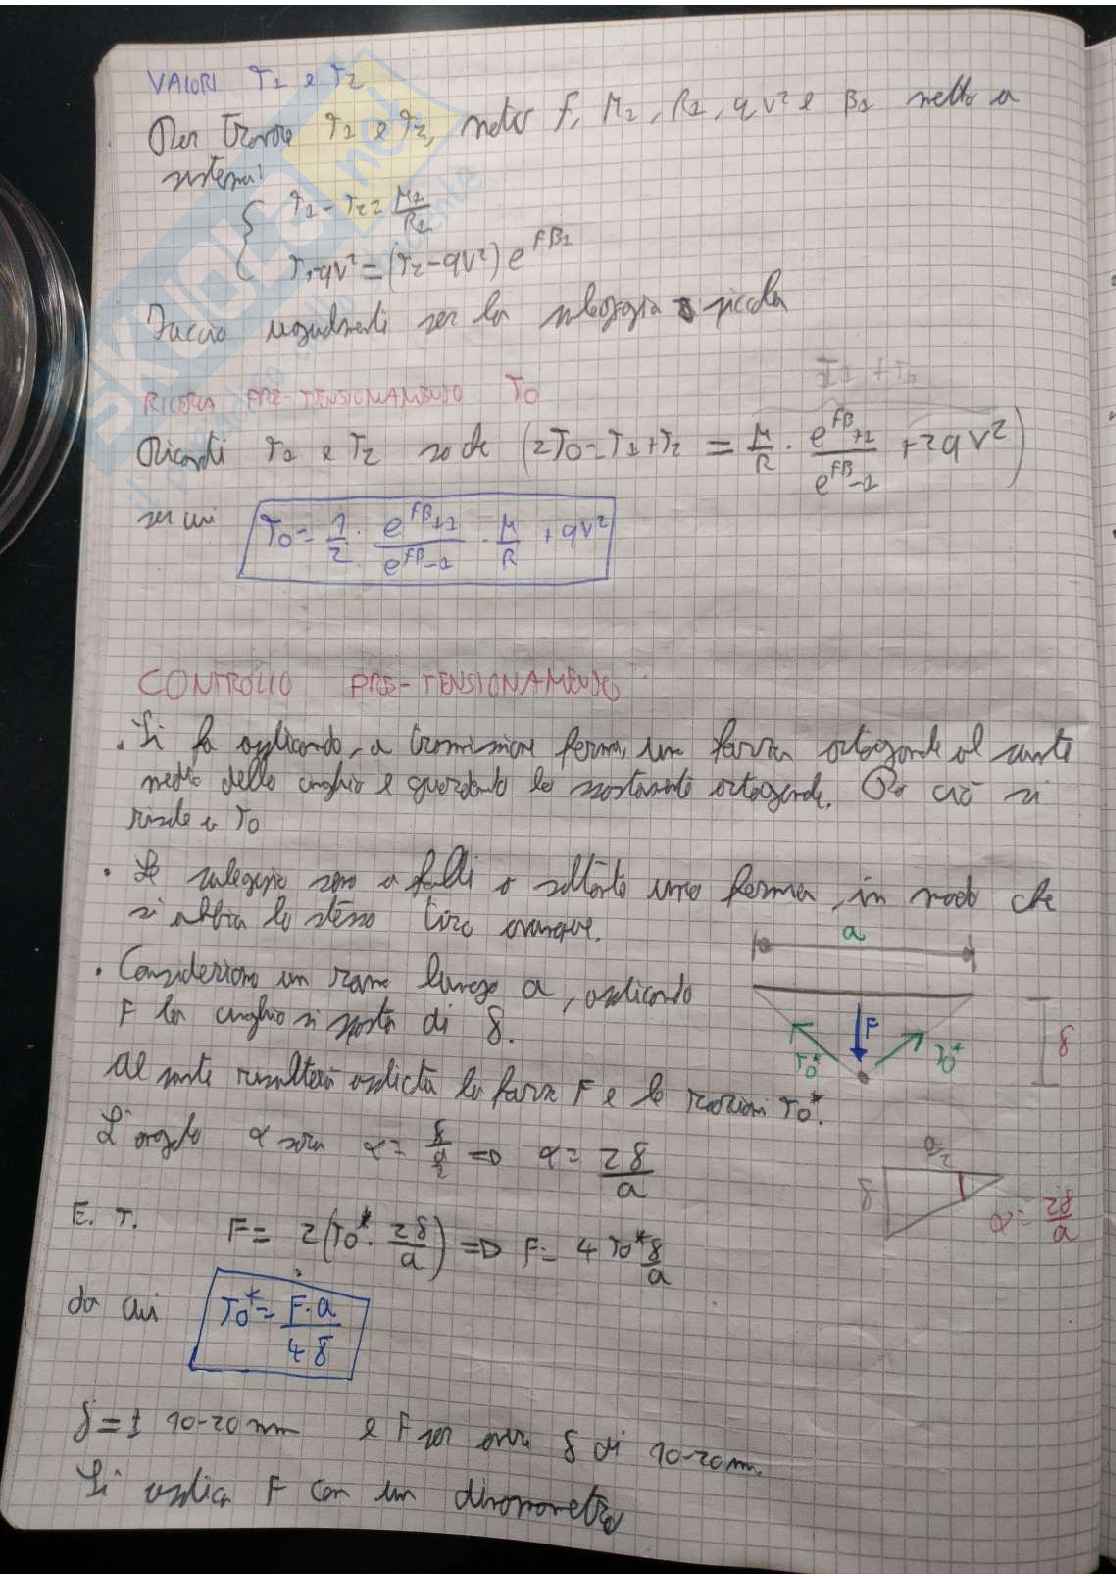 VALORI T1 e T2
Per trovare T1 e T2, noto f, M1, R1, q, v² e β1 metto a
sistema:
{ T1 - T2 = M1/R1
T1-qv² = (T2-qv²) e^fβ1
Faccio ugualmente per la puleggia piccola
RICERCA PRE-TENSIONAMENTO T0
T1 + T2
Ricordi T1 e T2 so che (2T0 = T1+T2 = M/R · (e^fβ+1)/(e^fβ-1) + 2qv²)
per cui T0 = 1/2 · (e^fβ+1)/(e^fβ-1) · M/R + qv²
CONTROLLO PRE-TENSIONAMENTO
• Si fa applicando, a trasmissione ferma, una forza ortogonale al punto
medio della cinghia e guardando lo spostamento ortogonale. Da ciò si
risale a T0
• Le pulegge sono a folli o soltanto una ferma, in modo che
si abbia lo stesso tiro ovunque.
a
• Consideriamo un ramo lungo a, applicando
F la cinghia si sposta di δ.
F
T0*
T0*
δ
Al punto risulterà applicata la forza F e le reazioni T0*.
L'angolo α sarà α = δ/(a/2) => α = 2δ/a
a/2
δ
α = 2δ/a
E. T. F = 2(T0* · 2δ/a) => F = 4 T0* δ/a
da cui T0* = F·a/4δ
δ = 1 10-20 mm e F per avere δ di 10-20 mm.
Si applica F con un dinamometro